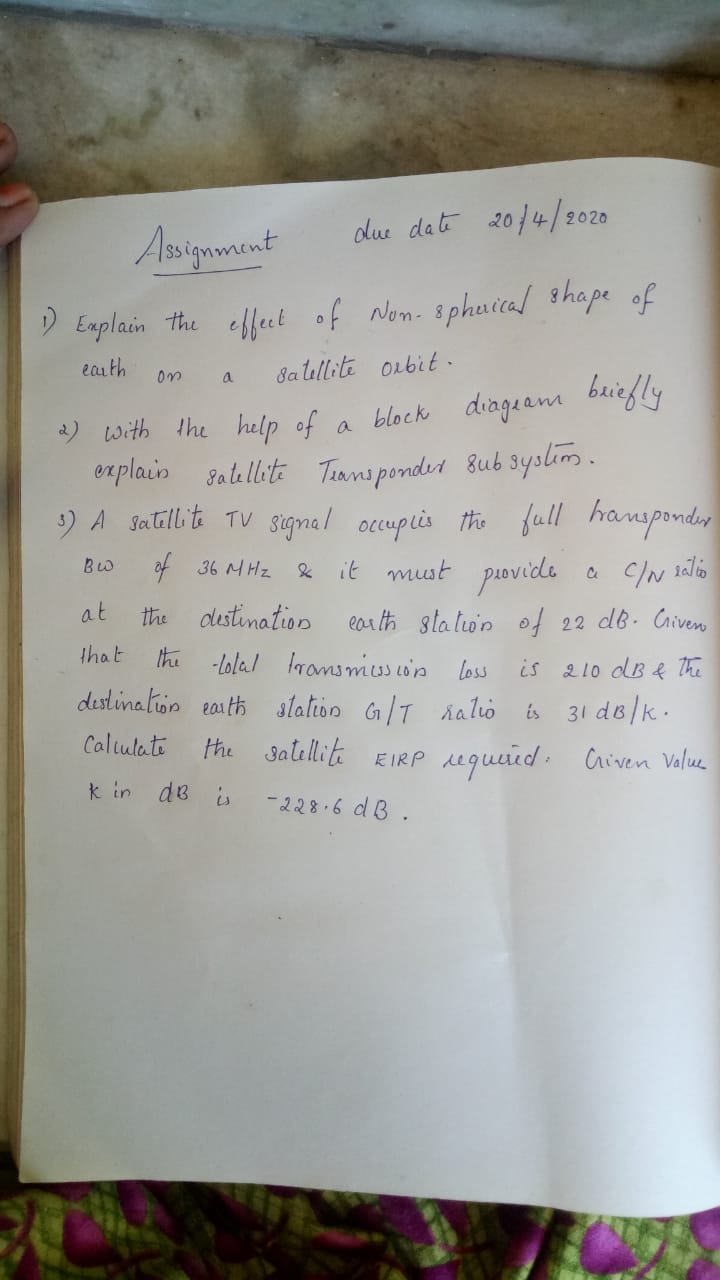 Assignment due date 20/4/2020
1) Explain the effect of Non-spherical shape of
earth on a satellite orbit.
2) With the help of a block diagram briefly
explain satellite Transponder Subsystem.
3) A satellite TV signal occupies the full transponder
BW of 36 MHz & it must provide a C/N ratio
at the destination earth station of 22 dB. Given
that the total transmission loss is 210 dB & the
destination earth station G/T ratio is 31 dB/K.
Calculate the satellite EIRP required. Given Value
k in dB is -228.6 dB.